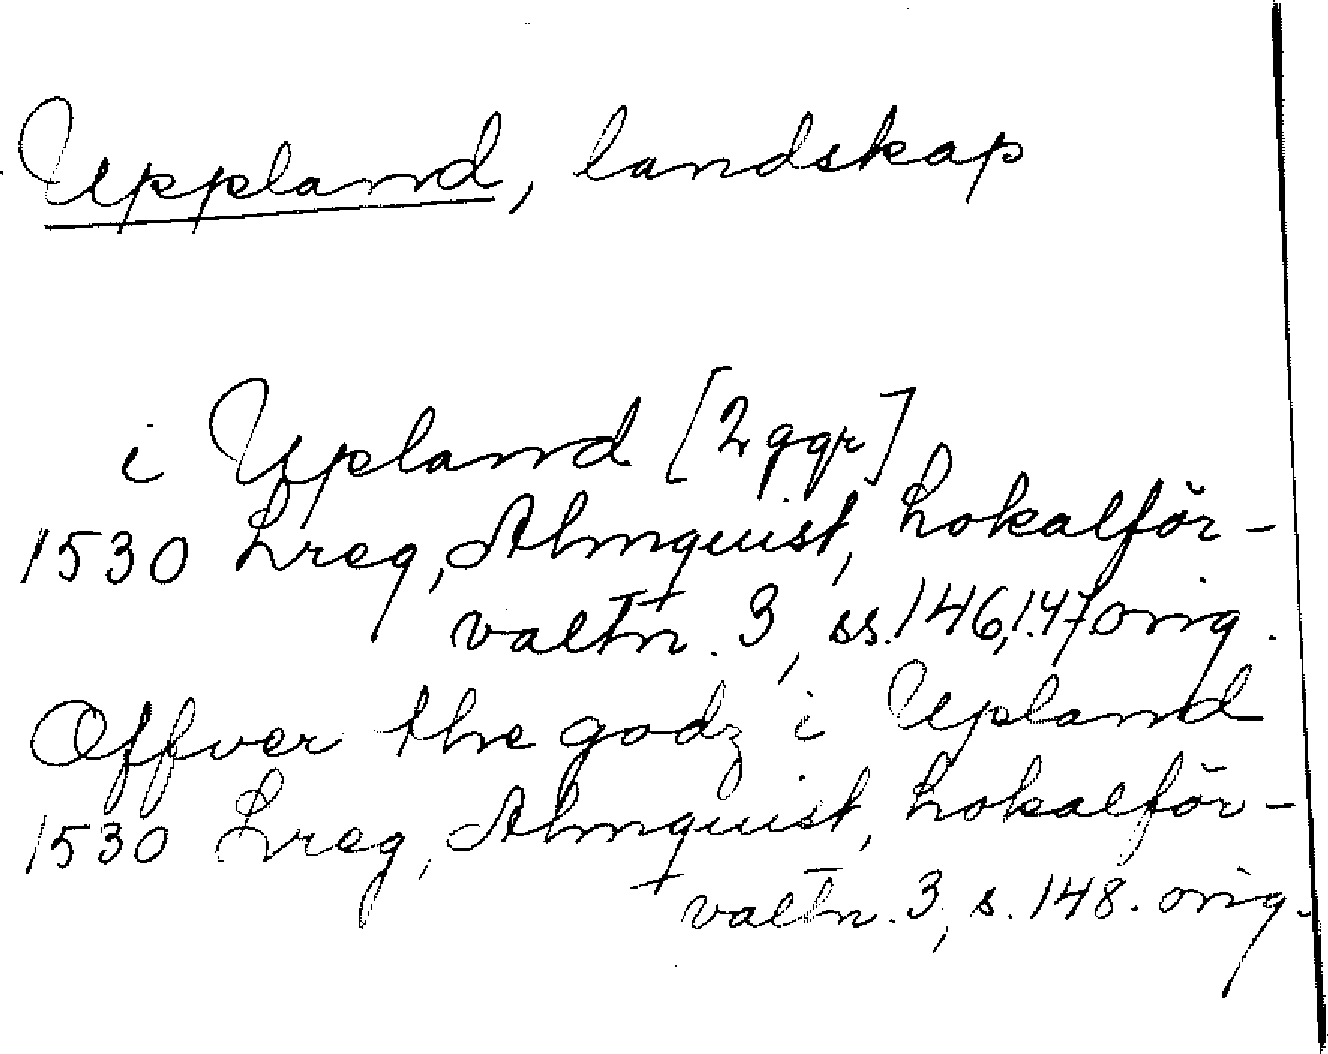 Uppland, landskap
i Upland [2 ggr]
1530 Lreg, Almquist, Lokalför-
valtn. 3, ss. 146, 147 orig.
Offver the godz i Upland
1530 Lreg, Almquist, Lokalför-
valtn. 3, s. 148. orig.